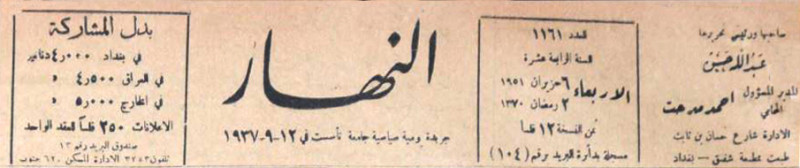 صاحبها ورئيس تحريرها
عبدالله حسن
المدير المسؤول
المحامي
احمد مدحت
الادارة شارع حسان بن ثابت
طبعت بمطبعة شفيق - بغداد
العدد ١١٦١
السنة الرابعة عشرة
الاربعاء
٦ حزيران ١٩٥١
٢ رمضان ١٣٧٠
ثمن النسخة ١٢ فلساً
مسجلة بدائرة البريد برقم (١٠٤)
النهار
جريدة يومية سياسية جامعة تأسست في ١٢-٩-١٩٣٧
بدل المشاركة
في بغداد ٤٫٠٠٠ دنانير
في العراق ٤٫٥٠٠ »
في الخارج ٥٫٠٠٠ »
الاعلانات ٢٥٠ فلساً للعقد الواحد
صندوق البريد رقم ١٣
تلفون ٣٢٨٣ الادارة للسكن ٦٢٠ جنوب